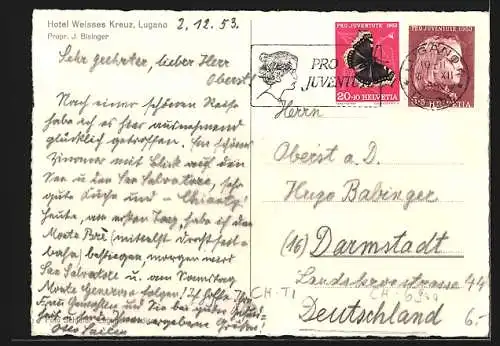 Hotel Weisses Kreuz, Lugano
Propr. J. Bisinger
2.12.53.
Sehr geehrter, lieber Herr
Oberst!
Nach einer schönen Reise
habe ich es hier ausnehmend
glücklich getroffen. Ein schönes
Zimmer mit Blick auf den
See u. den San Salvatore, sehr
gute Küche und – Chianti!
Heute, am ersten Tag, habe ich den
Monte Brè (mittelst Drahtseil-
bahn) bestiegen, morgen wird
San Salvatore u. am Samstag
Monte Generoso folgen! Ich hoffe Ihre
Frau Gemahlin und Sie bei guter
Ihnen ergebene Grüßen!
Otto
PRO
JUVENTUTE
PRO JUVENTUTE 1953
20+10 HELVETIA
PRO JUVENTUTE 1953
HELVETIA
LUGANO
XII
Herrn
Oberst a. D.
Hugo Babinger
(16) Darmstadt
Landskronstrasse 44
Deutschland
CH-TI
6.-